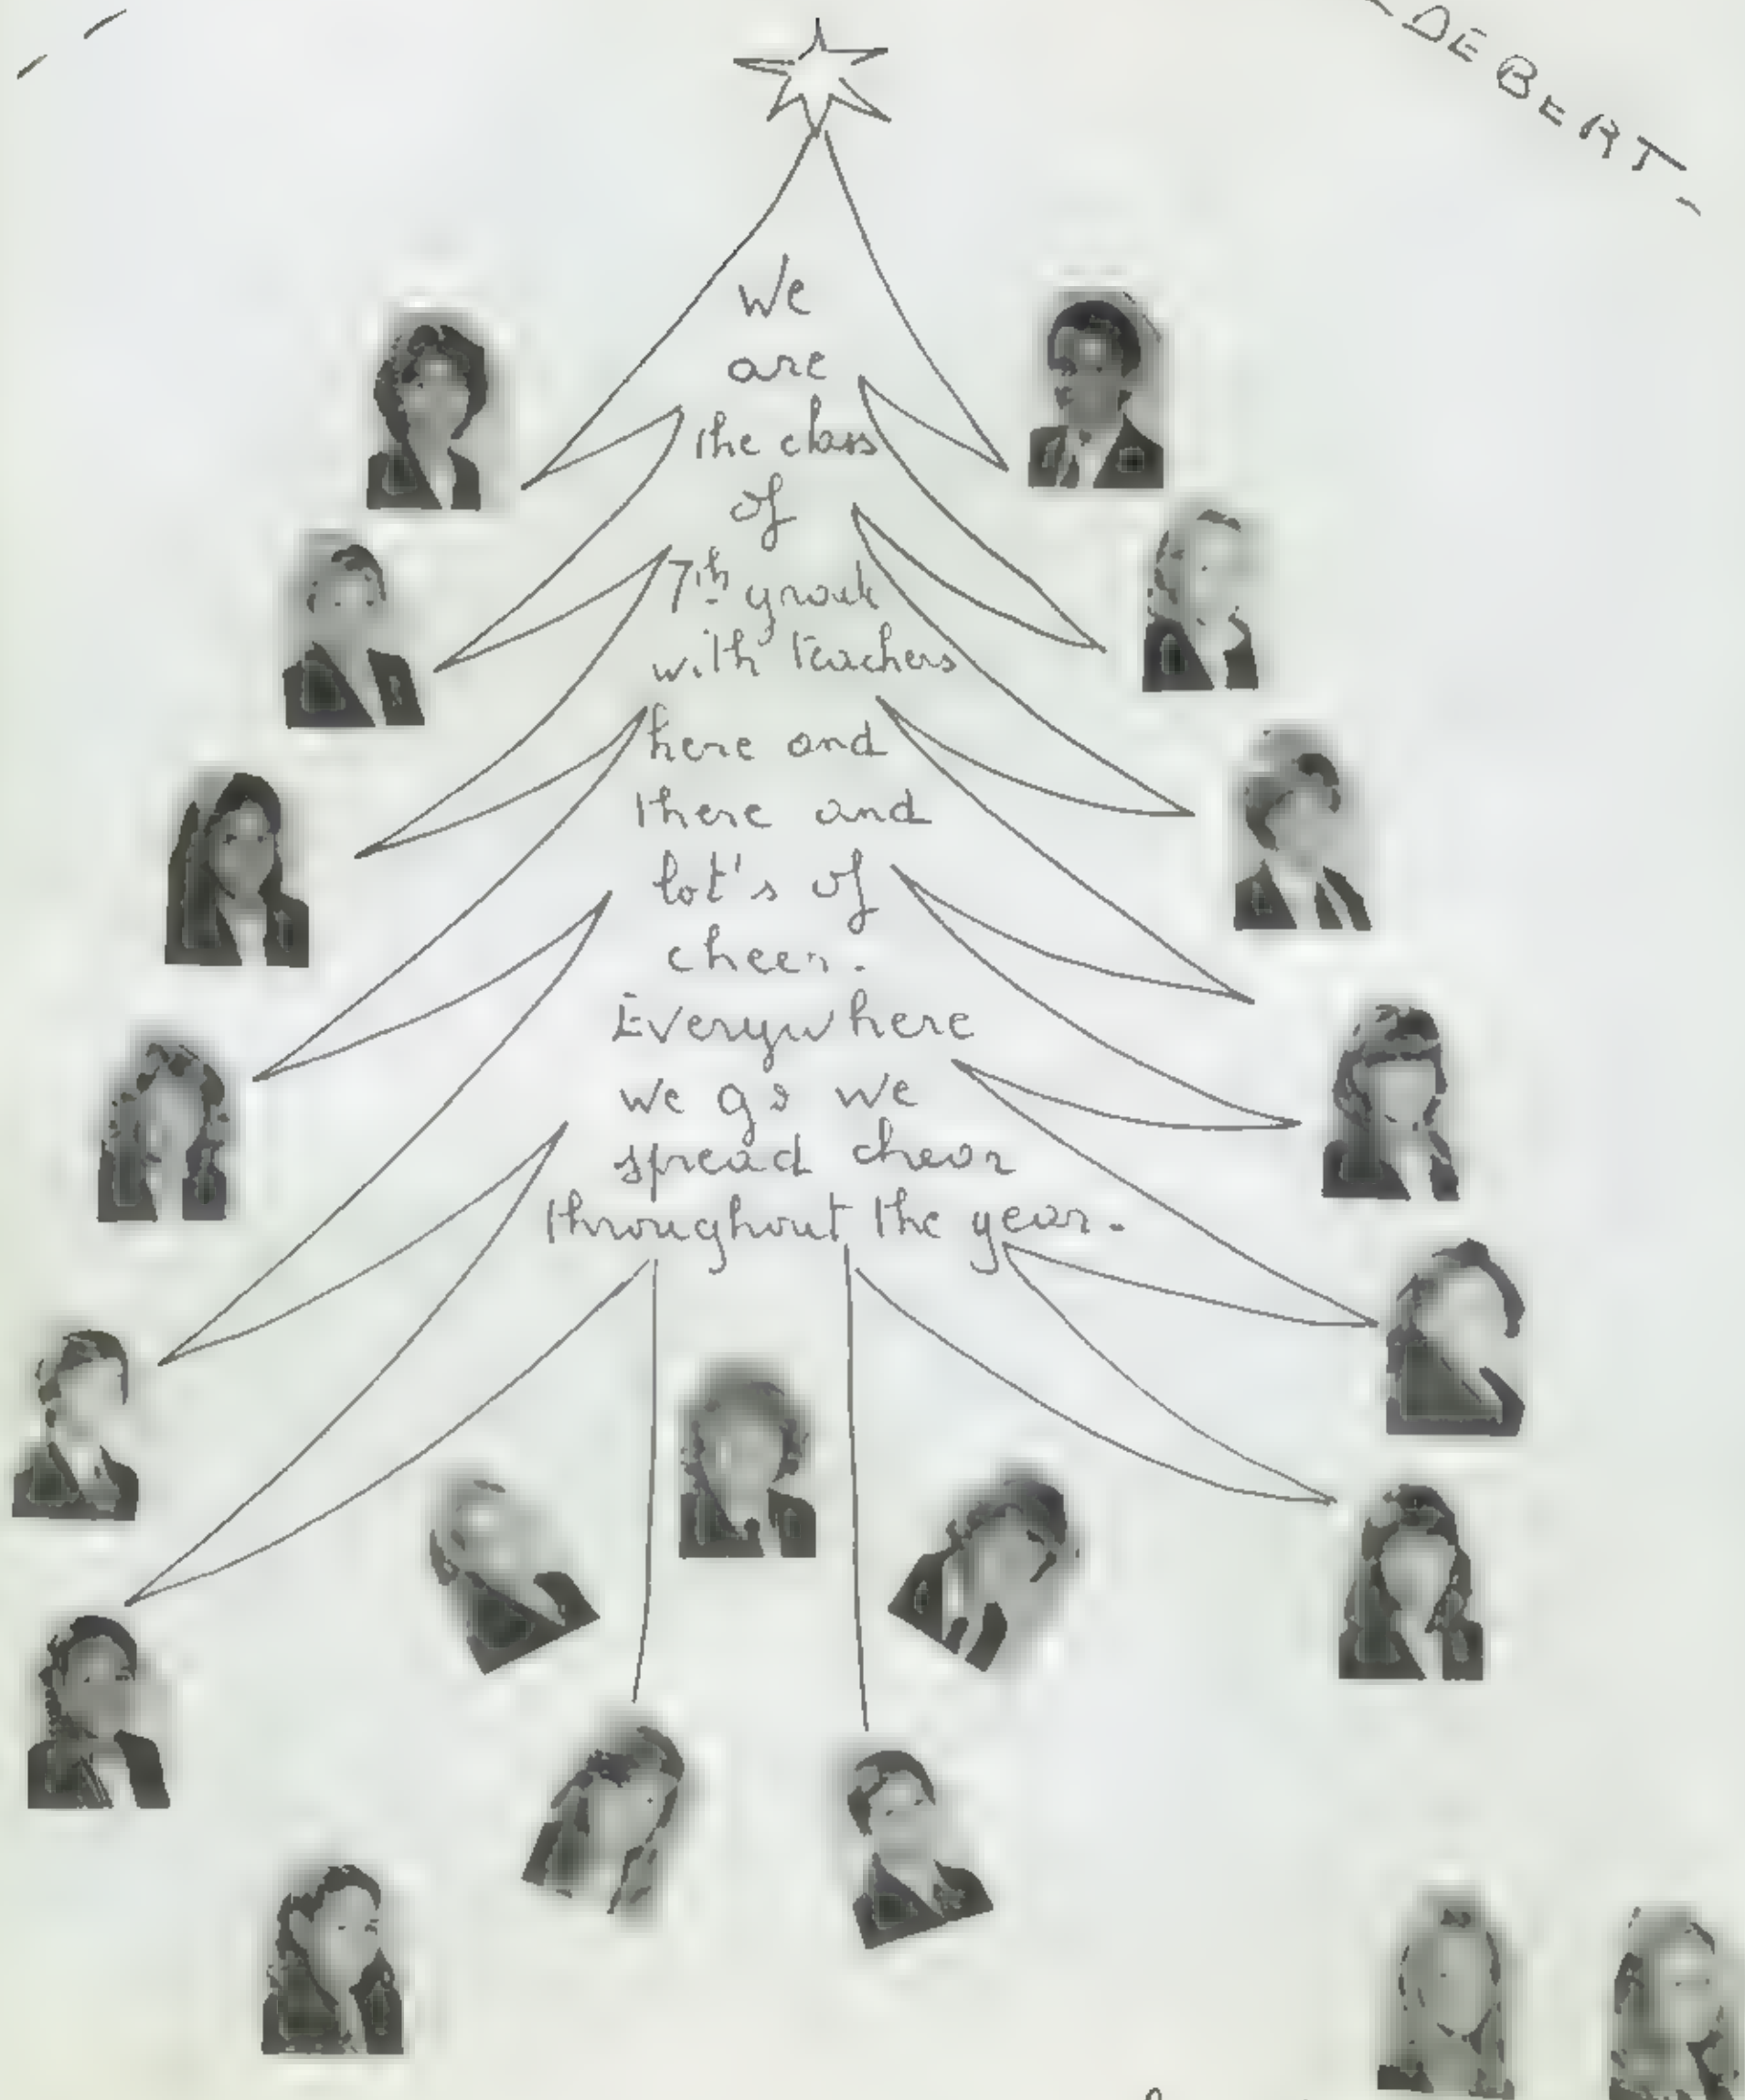 DEBERT
We
are
the class
of
7th grade
with teachers
here and
there and
lot's of
cheer.
Everywhere
we go we
spread cheor
throughout the year.